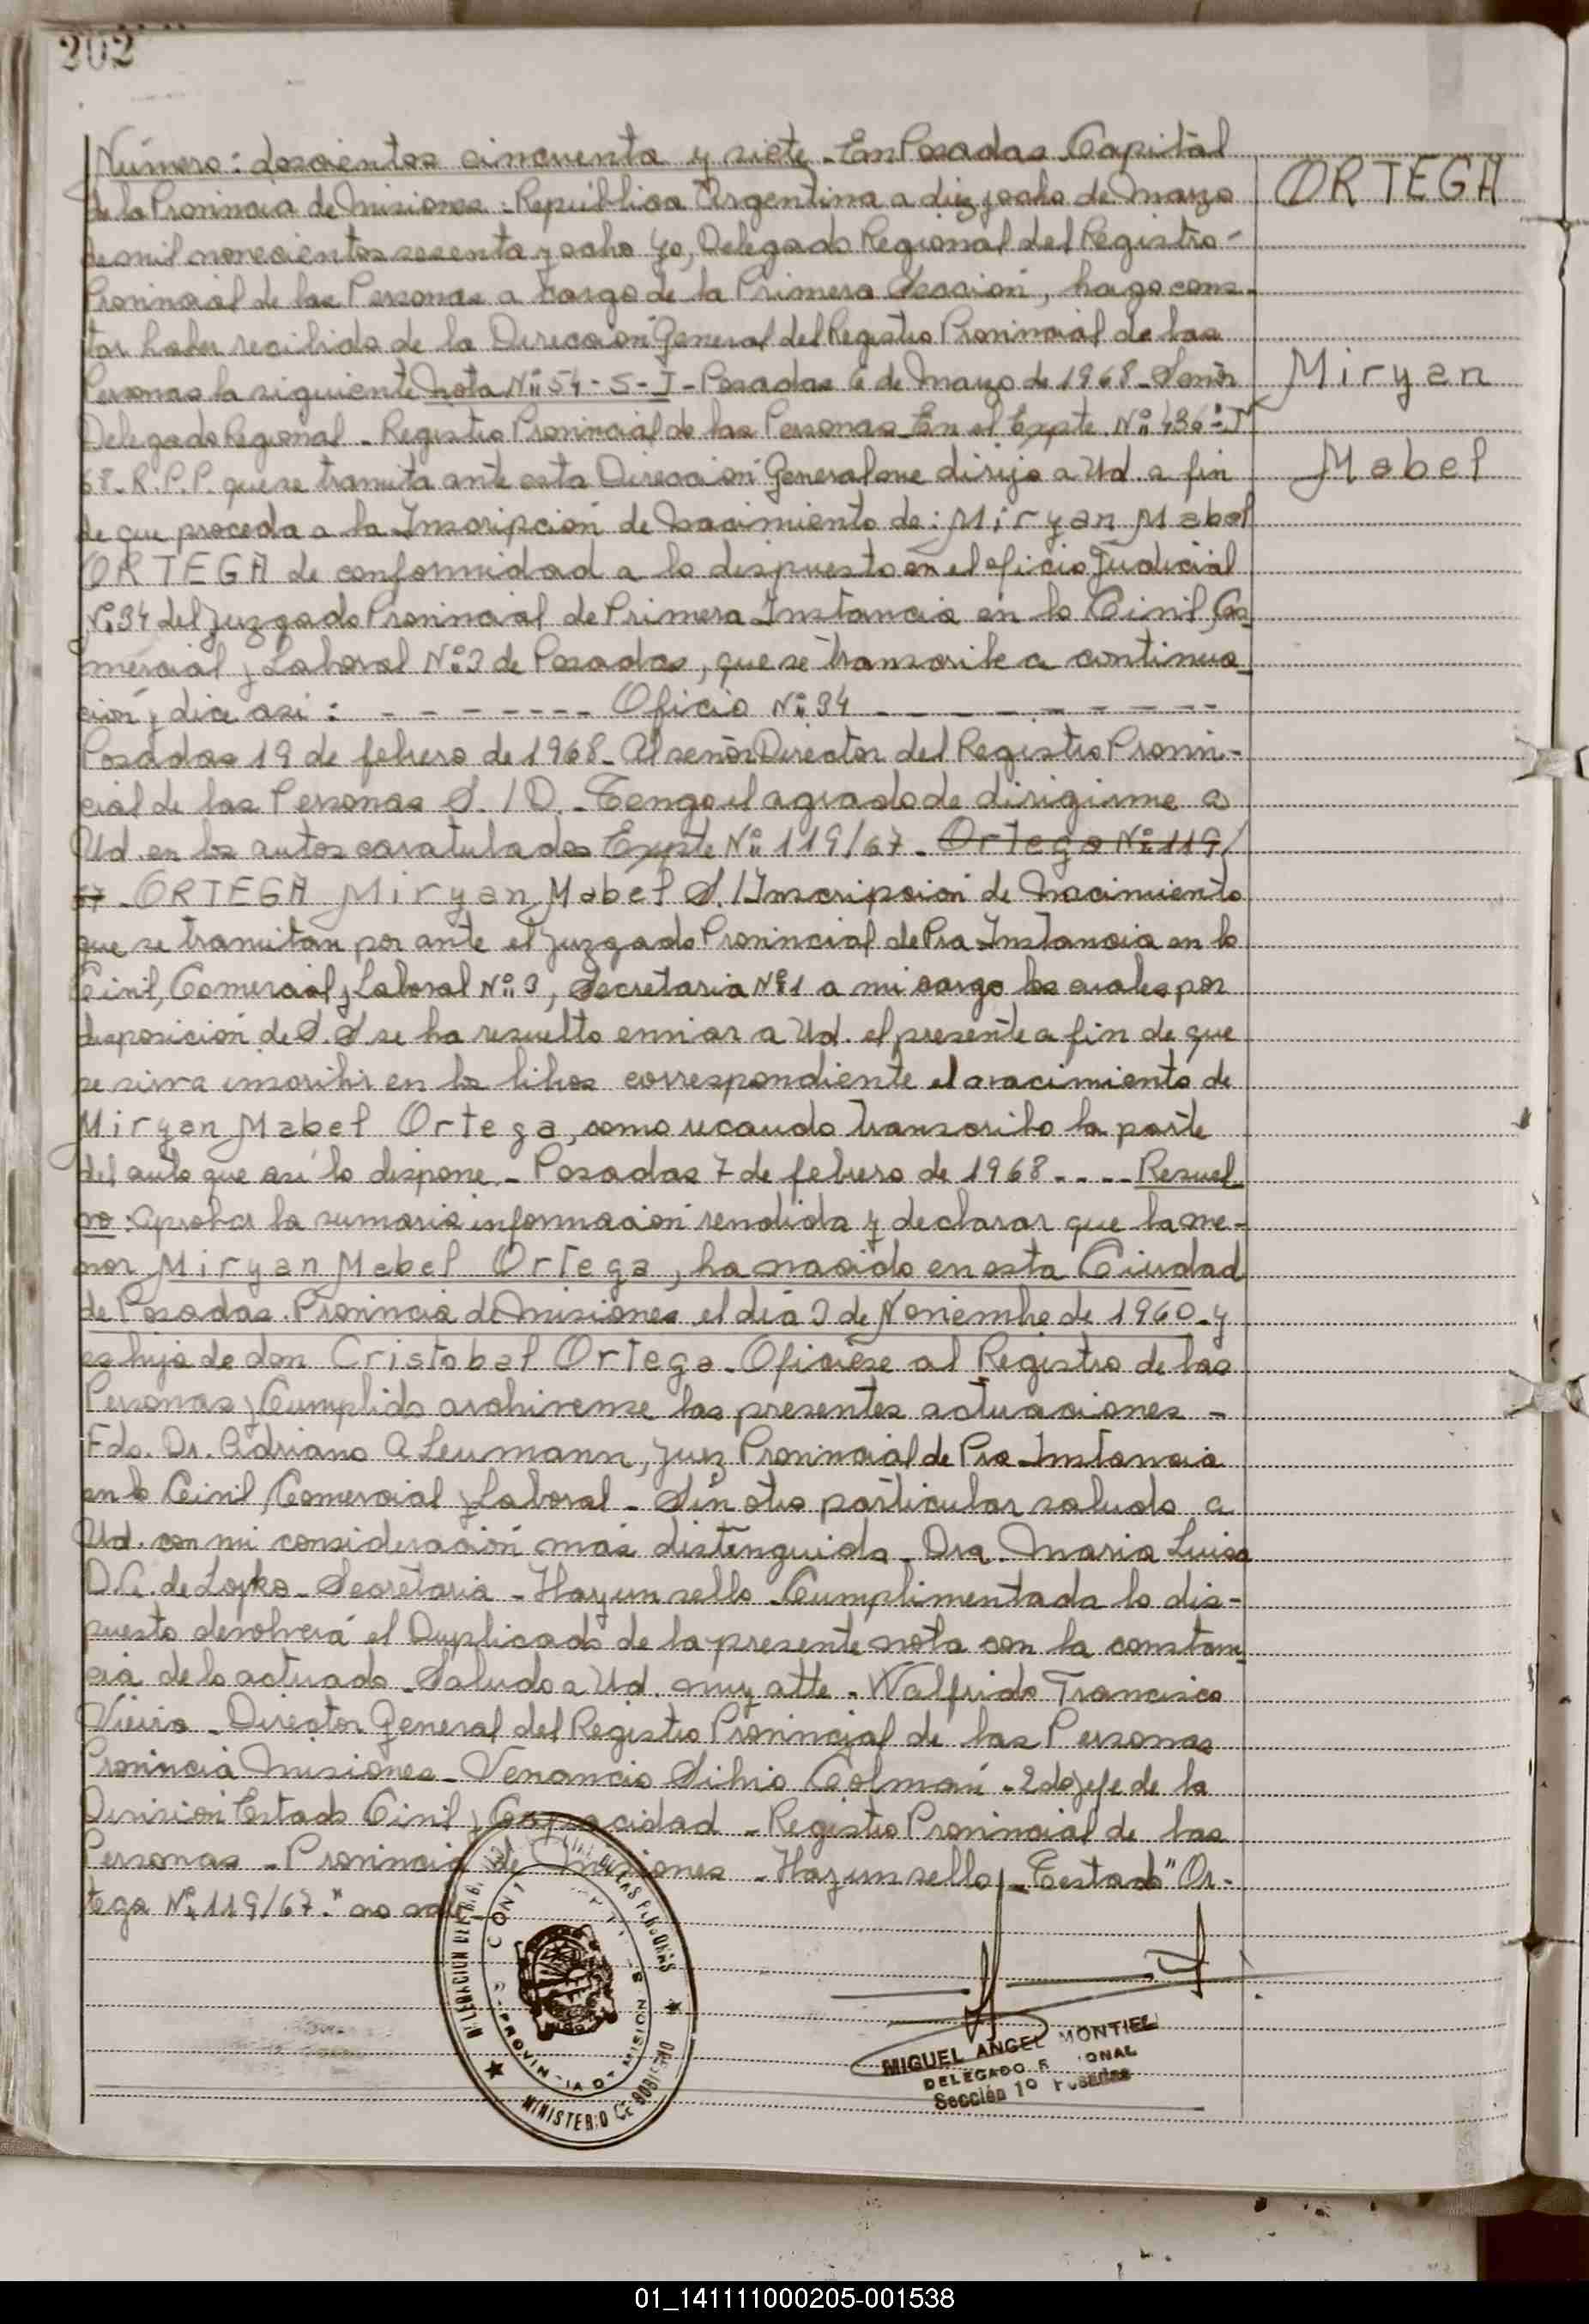 202
Número: doscientos cincuenta y siete - En Posadas Capital
de la Provincia de Misiones: República Argentina a diez y ocho de Marzo
de mil novecientos sesenta y ocho Yo, Delegado Regional del Registro-
Provincial de las Personas a cargo de la Primera Sección, hago cons-
tar haber recibido de la Dirección General del Registro Provincial de las
Personas la siguiente Nota Nº 54-S-I- Posadas 6 de Marzo de 1968- Señor
Delegado Regional - Registro Provincial de las Personas En el Expte. Nº 436-I
68- R.P.P. que se tramita ante esta Dirección General me dirijo a Ud. a fin
de que proceda a la Inscripción de Nacimiento de: Miryan Mabel
ORTEGA de conformidad a lo dispuesto en el oficio Judicial
Nº 34 del Juzgado Provincial de Primera Instancia en lo Civil, Co-
mercial y Laboral Nº 3 de Posadas, que se transcribe a continua-
ción y dice así: - - - - - - - - Oficio Nº 34 - - - - - - - - - -
Posadas 19 de febrero de 1968- Al señor Director del Registro Provin-
cial de las Personas S./D.- Tengo el agrado de dirigirme a
Ud. en los autos caratulados Expte Nº 119/67- Ortega Nº 119/
67 - ORTEGA Miryan Mabel S./Inscripción de Nacimiento
que se tramitan por ante el Juzgado Provincial de Pra Instancia en lo
Civil, Comercial y Laboral Nº 3, Secretaria Nº 1 a mi cargo los cuales por
disposición de S.S se ha resuelto enviar a Ud. el presente a fin de que
se sirva inscribir en los libros correspondiente el nacimiento de
Miryan Mabel Ortega, como recaudo transcribo la parte
del auto que así lo dispone.- Posadas 7 de febrero de 1968 - - - - Resuel-
vo: Aprobar la sumaria información rendida y declarar que la me-
nor Miryan Mabel Ortega, ha nacido en esta Ciudad
de Posadas. Provincia de Misiones el día 3 de Noviembre de 1960- y
es hija de don Cristobal Ortega- Ofíciese al Registro de las
Personas y Cumplido archivense las presentes actuaciones -
Fdo. Dr. Adriano A Leumann, Juez Provincial de Pra Instancia
en lo Civil, Comercial y Laboral - Sin otro particular saludo a
Ud. con mi consideración más distinguida- Dra. Maria Luisa
de Lopko- Secretaria - Hay un sello - Cumplimentada lo dis-
puesto devolverá el Duplicado de la presente nota con la constan-
cia de lo actuado- Saludo a Ud. muy atte.- Walfrido Francisco
Vieira - Director General del Registro Provincial de las Personas
Provincia Misiones- Venancio Silvio Colmán - 2do Jefe de la
División Estado Civil y Capacidad - Registro Provincial de las
Personas - Provincia de Misiones - Hay un sello - Testado "Or-
tega Nº 119/67." no vale
ORTEGA
Miryan
Mabel
DE LAS PERSONAS
MINISTERIO DE GOBIERNO
MIGUEL ANGEL MONTIEL
DELEGADO
Sección 1º Posadas
01_141111000205-001538